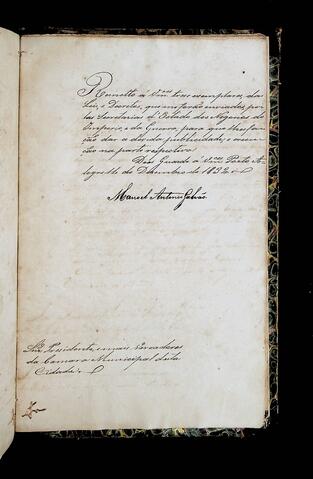 Remetto á Vm.ces tres exemplares, das
Leis, e Decretos, que me forão enviados, por
las Secretarias d'Estado dos Negocios do
Imperio, e da Guerra, para que lhes fa
ção dar a devida publicidade, e execu
ção na parte respectiva
Deos Guarde a Vm.ces Porto A
legre 16 de Dezembro de 1832
Manoel Antonio Galvão
Snr. Presidente, e mais Vereadores
da Camara Municipal desta
Cidade.